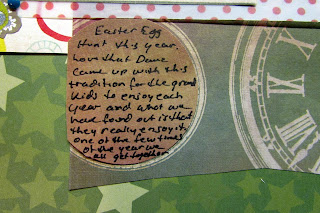 Easter Egg
Hunt this year.
Love that Dane
came up with this
tradition for the grand
kids to enjoy each
year and what we
have found out is that
they really enjoy it,
one of the few times
of the year we
all get together
XI
XII